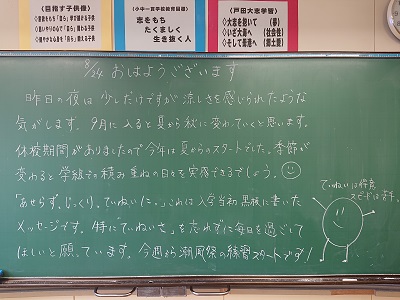 《目指す子供像》
《小中一貫学校教育目標》
志をもち
たくましく
生き抜く人
《戸田大志学習》
◇大志を抱いて（夢）
◇いざ大海へ（社会性）
◇そして母港へ（郷土愛）
8/24 おはようございます
昨日の夜は少しだけですが涼しさを感じられたような
気がします。9月に入ると夏から秋に変わっていくと思います。
休校期間がありましたので今年は夏からのスタートでした。季節が
変わると学級での積み重ねの日々を実感できるでしょう。
「あせらず、じっくり、ていねいに。」これは入学当初黒板に書いた
メッセージです。特に「ていねいさ」を忘れずに毎日を過ごして
ほしいと願っています。今週から潮風祭の練習スタートです！
ていねいは得意
スピードは苦手。